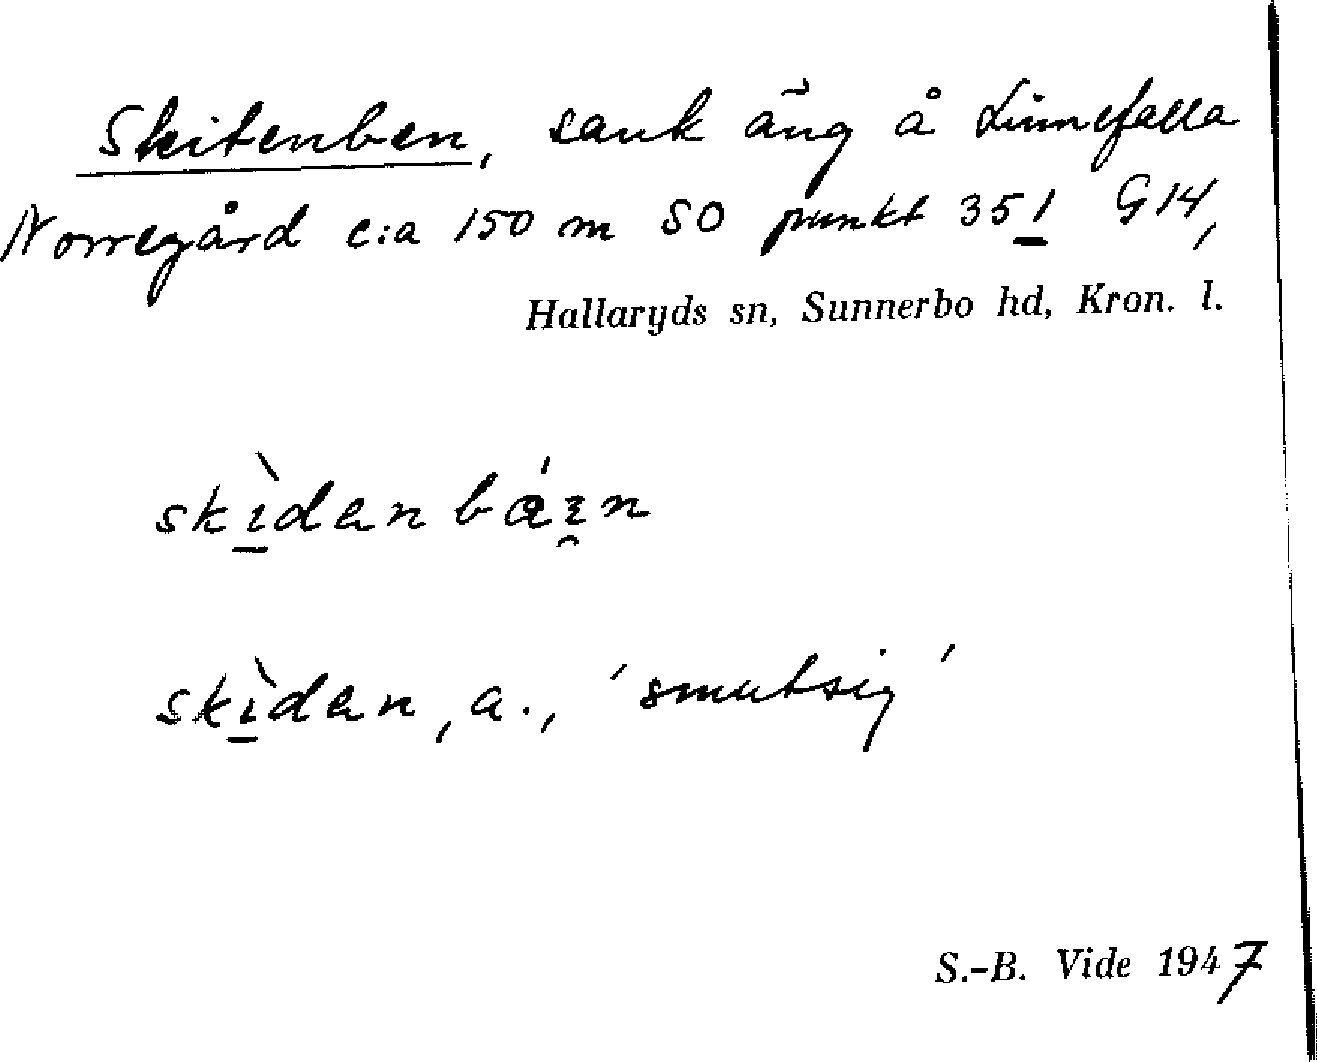 Skitenben, sank äng å Linnefalla
Norregård c:a 150 m SO punkt 351 G14,
Hallaryds sn, Sunnerbo hd, Kron. l.
skɪ̠̀dan báɪ̯n
skɪ̠̀dan, a., 'smutsig'
S.-B. Vide 1947